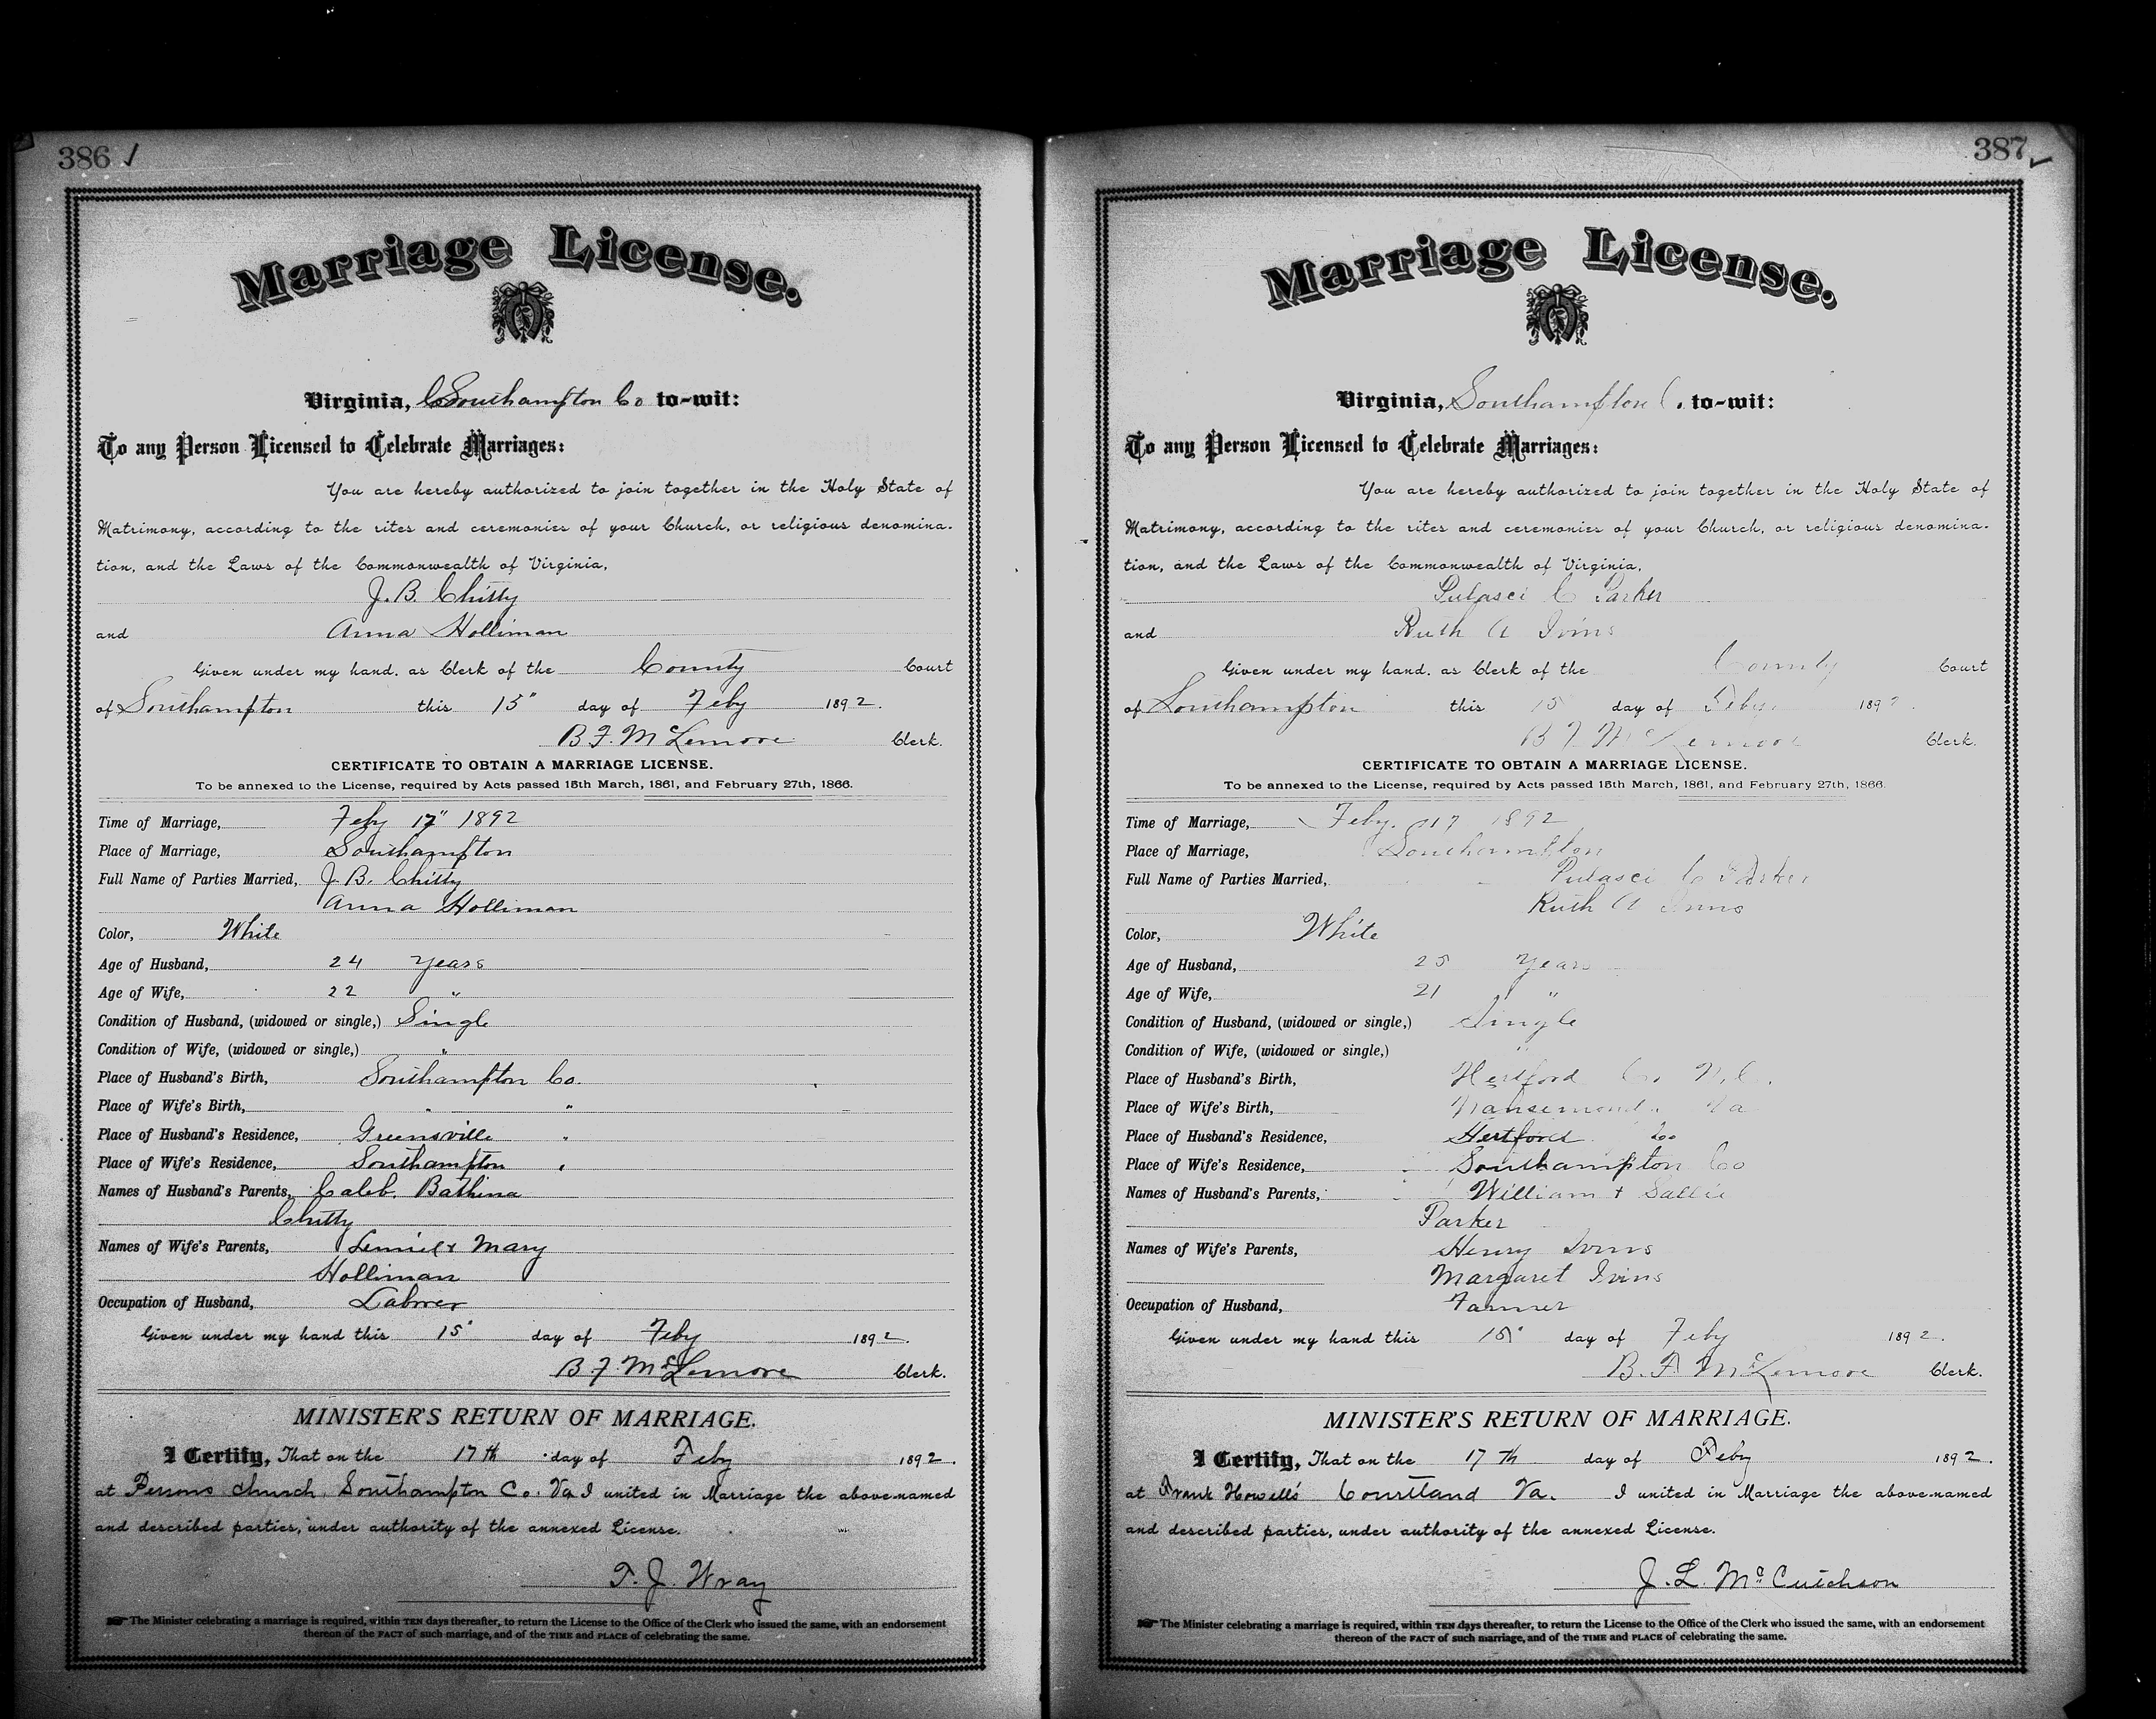 386 ✓
Marriage License.
Virginia, Southampton Co to-wit:
To any Person Licensed to Celebrate Marriages:
You are hereby authorized to join together in the Holy State of
Matrimony, according to the rites and ceremonies of your Church, or religious denomina-
tion, and the Laws of the Commonwealth of Virginia,
J. B. Chitty
and Anna Holliman
Given under my hand, as Clerk of the County Court
of Southampton this 15" day of Feby 1892.
B. F. McLemore Clerk.
CERTIFICATE TO OBTAIN A MARRIAGE LICENSE.
To be annexed to the License, required by Acts passed 15th March, 1861, and February 27th, 1866.
Time of Marriage, Feby 17" 1892
Place of Marriage, Southampton
Full Name of Parties Married, J. B. Chitty
Anna Holliman
Color, White
Age of Husband, 24 Years
Age of Wife, 22 "
Condition of Husband, (widowed or single,) Single
Condition of Wife, (widowed or single,) "
Place of Husband's Birth, Southampton Co.
Place of Wife's Birth, " "
Place of Husband's Residence, Greensville "
Place of Wife's Residence, Southampton "
Names of Husband's Parents, Caleb Bathina
Chitty
Names of Wife's Parents, Lemuel & Mary
Holliman
Occupation of Husband, Laborer
Given under my hand this 15" day of Feby 1892.
B. F. McLemore Clerk.
MINISTER'S RETURN OF MARRIAGE.
I Certify, That on the 17th day of Feby 1892.
at Persons Church, Southampton Co. Va I united in Marriage the above-named
and described parties, under authority of the annexed License.
T. J. Wray
The Minister celebrating a marriage is required, within TEN days thereafter, to return the License to the Office of the Clerk who issued the same, with an endorsement
thereon of the FACT of such marriage, and of the TIME and PLACE of celebrating the same.
387 ✓
Marriage License.
Virginia, Southampton Co. to-wit:
To any Person Licensed to Celebrate Marriages:
You are hereby authorized to join together in the Holy State of
Matrimony, according to the rites and ceremonies of your Church, or religious denomina-
tion, and the Laws of the Commonwealth of Virginia,
Pulasci C Parker
and Ruth A Ivins
Given under my hand, as Clerk of the County Court
of Southampton this 15 day of Feby. 1892.
B F McLemore Clerk.
CERTIFICATE TO OBTAIN A MARRIAGE LICENSE.
To be annexed to the License, required by Acts passed 15th March, 1861, and February 27th, 1866.
Time of Marriage, Feby. 17 1892
Place of Marriage, Southampton
Full Name of Parties Married, Pulasci C Parker
Ruth A Ivins
Color, White
Age of Husband, 25 Years
Age of Wife, 21 "
Condition of Husband, (widowed or single,) Single
Condition of Wife, (widowed or single,) "
Place of Husband's Birth, Hertford Co. N.C.
Place of Wife's Birth, Nansemond Va
Place of Husband's Residence, Hertford Co
Place of Wife's Residence, Southampton Co
Names of Husband's Parents, William & Sallie
Parker
Names of Wife's Parents, Henry Ivins
Margaret Ivins
Occupation of Husband, Farmer
Given under my hand this 15" day of Feby 1892.
B. F. McLemore Clerk.
MINISTER'S RETURN OF MARRIAGE.
I Certify, That on the 17th day of Feby 1892.
at Frank Howell's Courtland Va. I united in Marriage the above-named
and described parties, under authority of the annexed License.
J. L. McCutchson
The Minister celebrating a marriage is required, within TEN days thereafter, to return the License to the Office of the Clerk who issued the same, with an endorsement
thereon of the FACT of such marriage, and of the TIME and PLACE of celebrating the same.